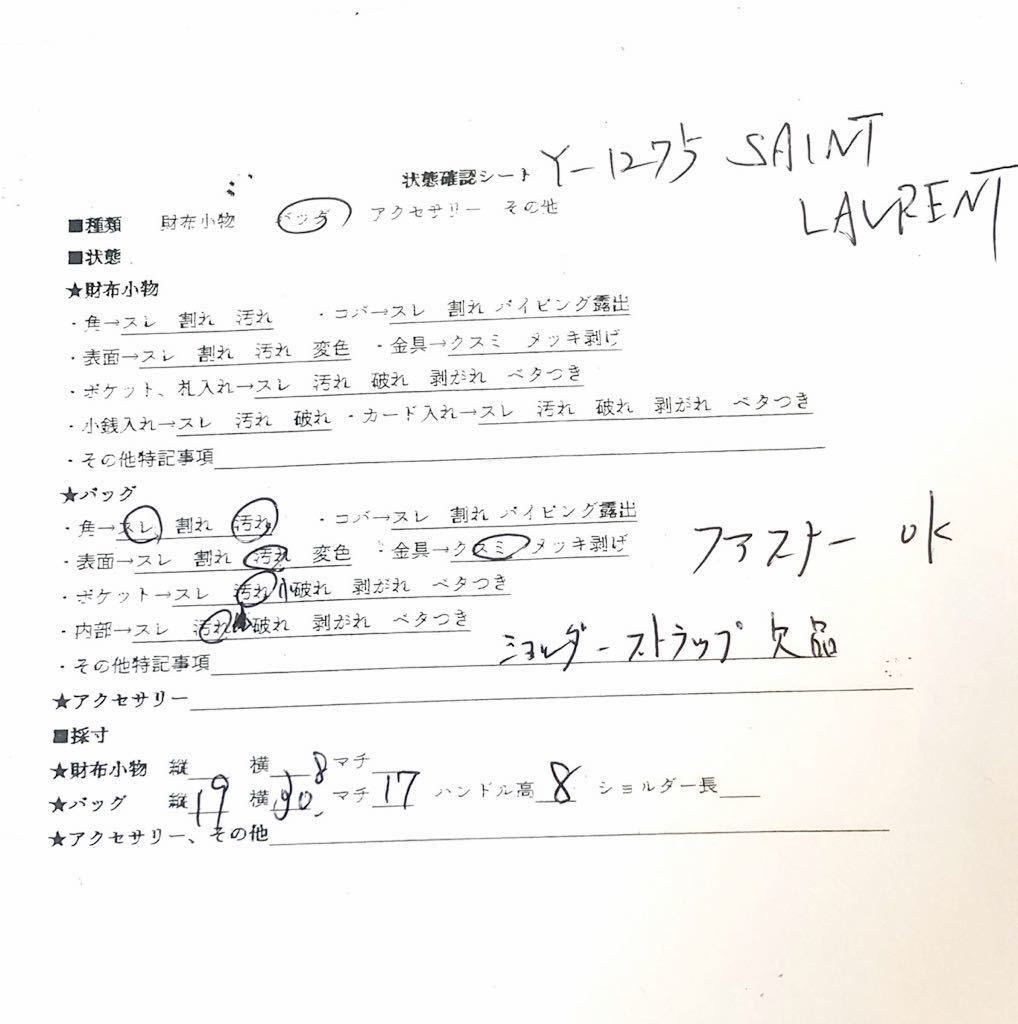 状態確認シート Y-1275 SAINT
LAURENT
■種類 財布小物 バッグ アクセサリー その他
■状態
★財布小物
・角→スレ 割れ 汚れ ・コバ→スレ 割れ パイピング露出
・表面→スレ 割れ 汚れ 変色 ・金具→クスミ メッキ剥げ
・ポケット、札入れ→スレ 汚れ 破れ 剥がれ ベタつき
・小銭入れ→スレ 汚れ 破れ ・カード入れ→スレ 汚れ 破れ 剥がれ ベタつき
・その他特記事項
★バッグ
・角→スレ 割れ 汚れ ・コバ→スレ 割れ パイピング露出
ファスナー OK
・表面→スレ 割れ 汚れ 変色 ・金具→クスミ メッキ剥げ
・ポケット→スレ 汚れ 破れ 剥がれ ベタつき
・内部→スレ 汚れ 破れ 剥がれ ベタつき
・その他特記事項 ショルダーストラップ 欠品
★アクセサリー
■採寸
★財布小物 縦 横 マチ
★バッグ 縦 19 横 マチ 17 ハンドル高 8 ショルダー長
★アクセサリー、その他